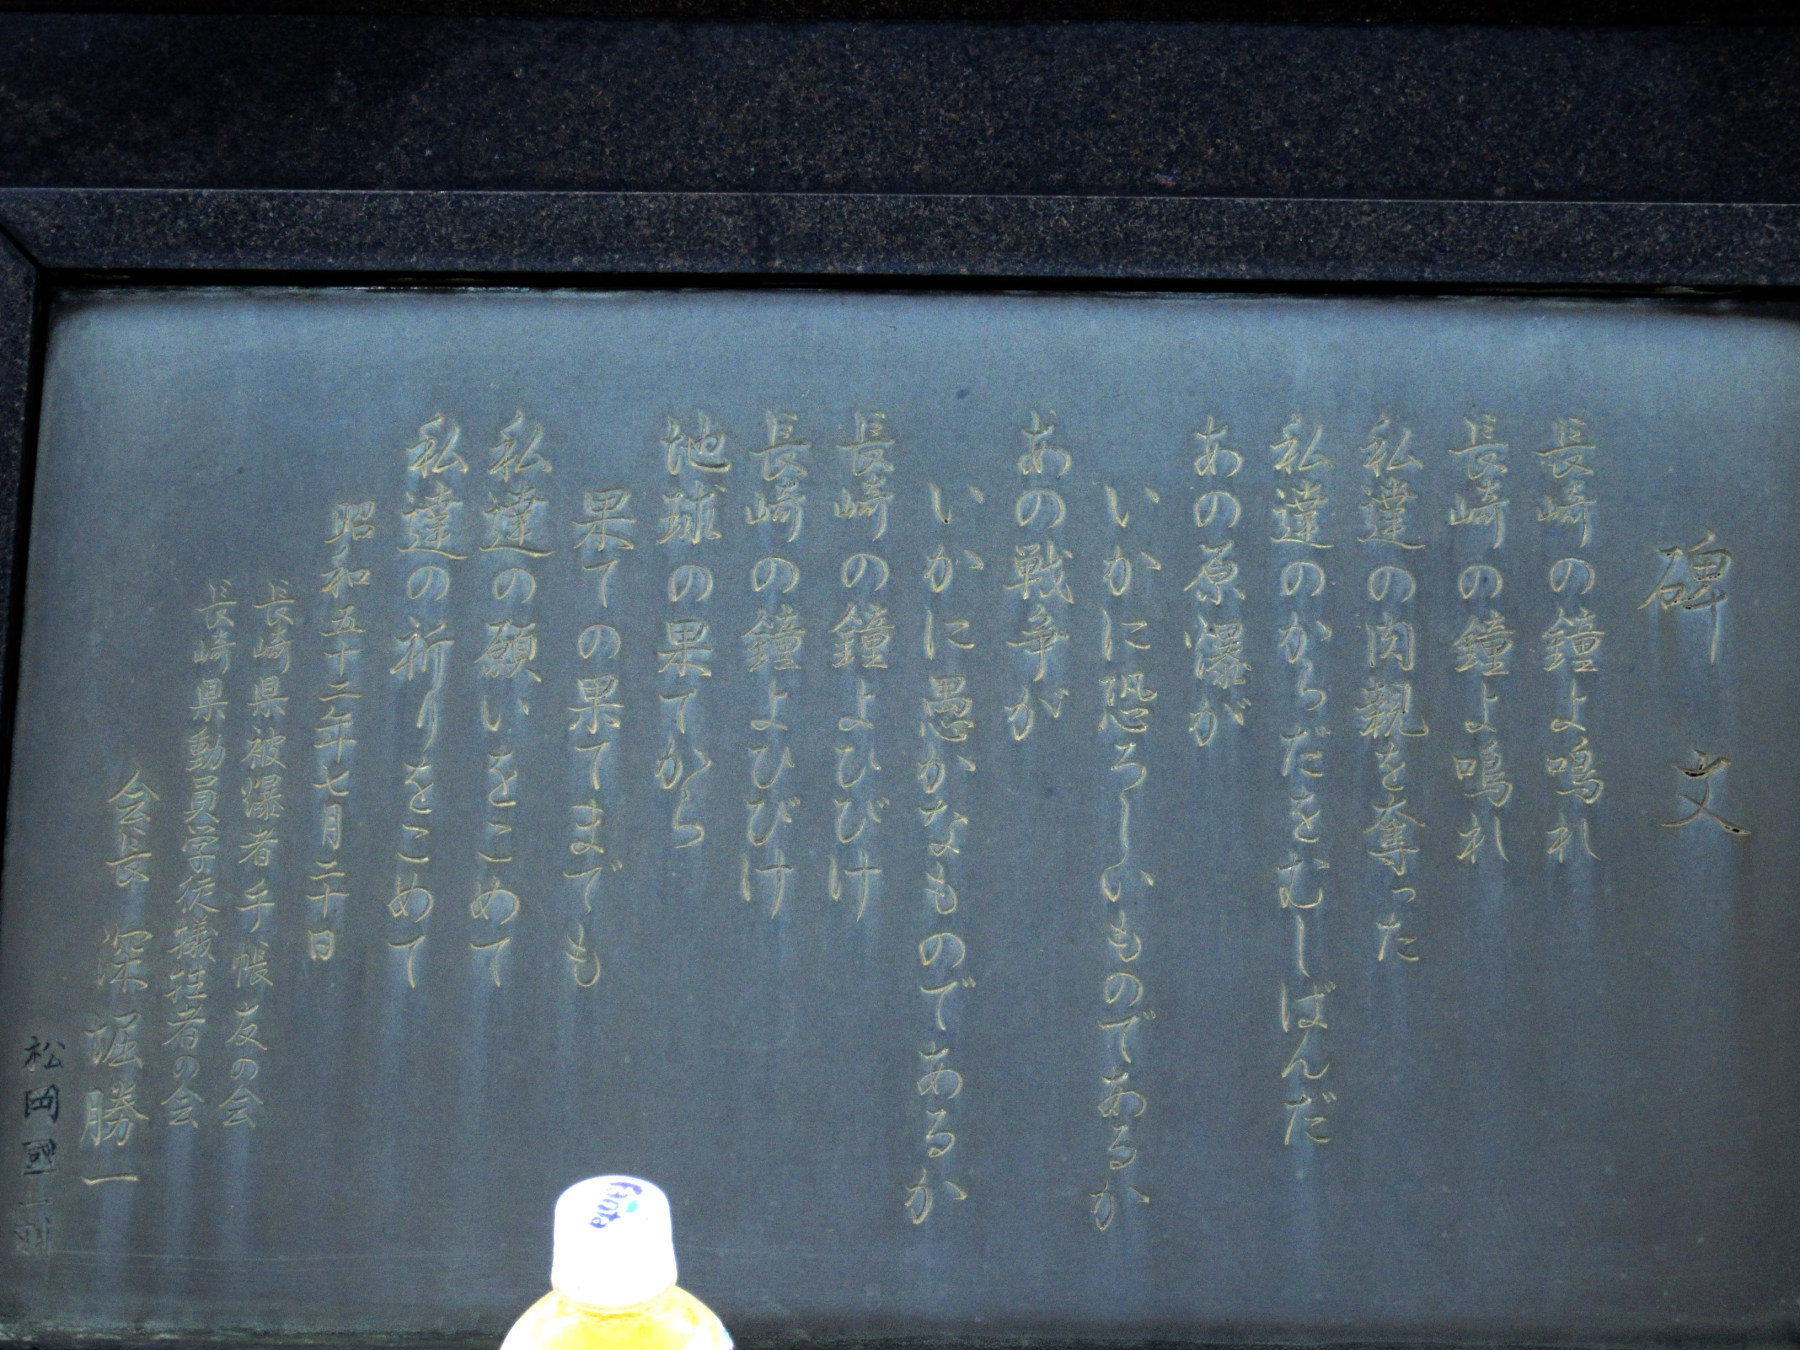 碑文
長崎の鐘よ鳴れ
長崎の鐘よ鳴れ
私達の肉親を奪った
私達のからだをむしばんだ
あの原爆が
いかに恐ろしいものであるか
あの戦争が
いかに愚かなものであるか
長崎の鐘よひびけ
長崎の鐘よひびけ
地球の果てから
果ての果てまでも
私達の願いをこめて
私達の祈りをこめて
昭和五十二年七月二十日
長崎県被爆者手帳友の会
長崎県動員学徒犠牲者の会
会長 深堀勝一
松岡國一
Fanta